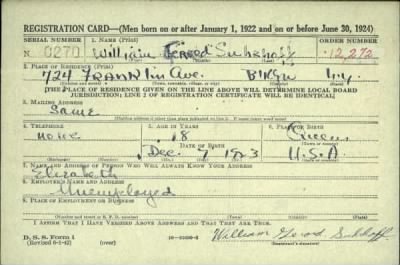 REGISTRATION CARD—(Men born on or after January 1, 1922 and on or before June 30, 1924)
SERIAL NUMBER 1. NAME (Print) ORDER NUMBER
N 0270 William 12,272
(First) (Middle) (Last)
2. PLACE OF RESIDENCE (Print)
724 Franklin Ave. Bklyn N.Y.
(Number and street) (Town, township, village, or city) (County) (State)
[THE PLACE OF RESIDENCE GIVEN ON THE LINE ABOVE WILL DETERMINE LOCAL BOARD
JURISDICTION; LINE 2 OF REGISTRATION CERTIFICATE WILL BE IDENTICAL]
3. MAILING ADDRESS
Same
(Mailing address if other than place indicated on line 2. If same insert word same)
4. TELEPHONE 5. AGE IN YEARS 6. PLACE OF BIRTH
none 18 Queens
DATE OF BIRTH
Dec. 7 1923 U.S.A.
(Exchange) (Number) (Mo.) (Day) (Yr.) (State or country)
7. NAME AND ADDRESS OF PERSON WHO WILL ALWAYS KNOW YOUR ADDRESS
Elizabeth
8. EMPLOYER'S NAME AND ADDRESS
Unemployed
9. PLACE OF EMPLOYMENT OR BUSINESS
(Number and street or R. F. D. number) (Town) (County) (State)
I AFFIRM THAT I HAVE VERIFIED ABOVE ANSWERS AND THAT THEY ARE TRUE.
D. S. S. Form 1 William
(Revised 6-1-42) (over) (Registrant's signature)